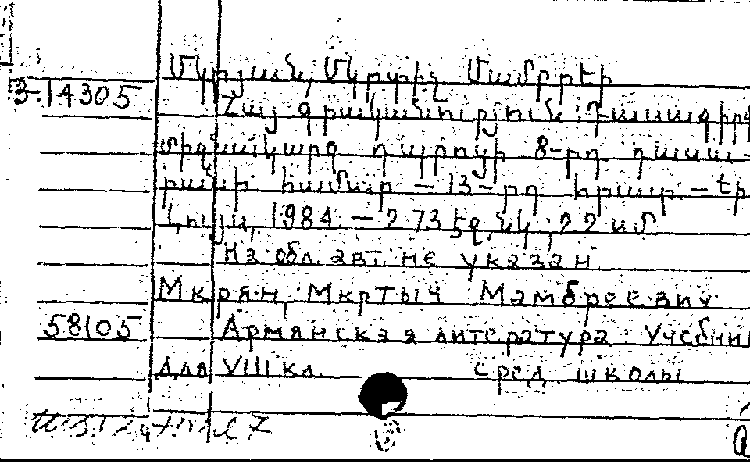 Մկրյան, Մկրտիչ Մամբրեի
3-14305
Հայ գրականություն: Դասագիրք
միջնակարգ դպրոցի 8-րդ դասա-
րանի համար. – 13-րդ հրատ. – Եր.:
Լույս, 1984. – 273 էջ, նկ.; 22 սմ.
На обл. авт. не указан.
Мкрян, Мкртыч Мамбреевич.
58105
Армянская литература: Учебник
для VIII кл. сред. школы